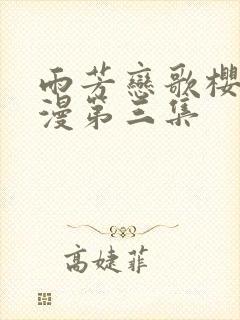 雨芳戀歌櫻
漫第三集
高婕菲